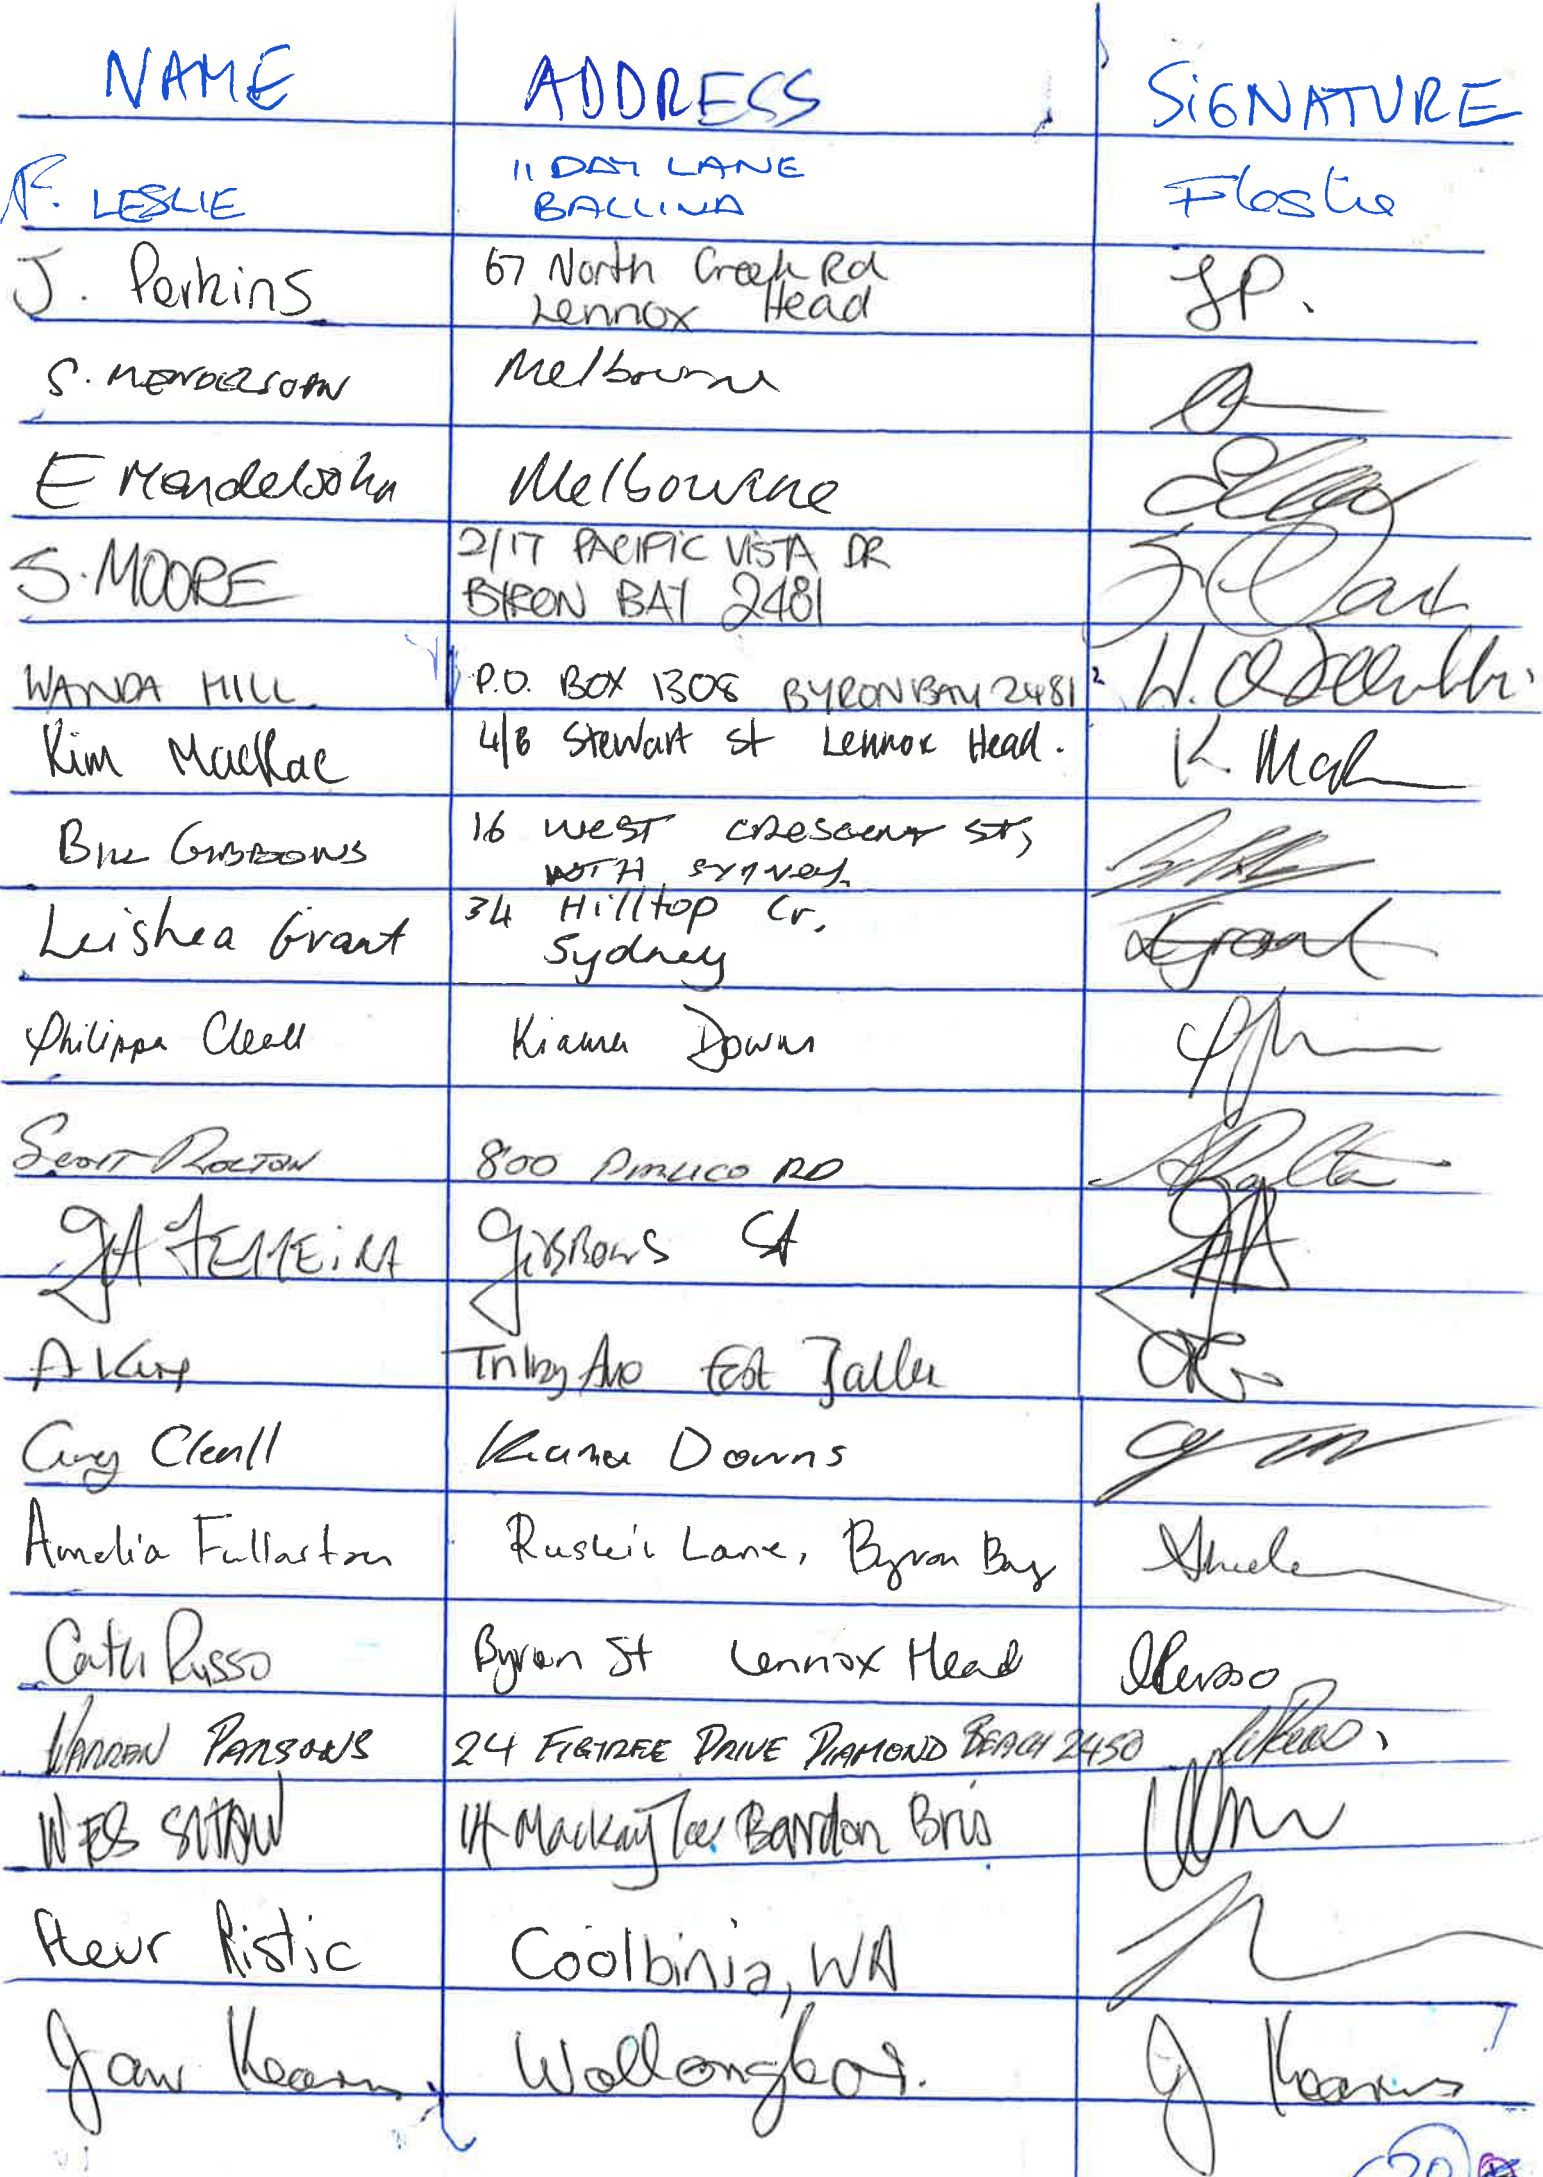 NAME ADDRESS SIGNATURE
F. LESLIE 11 DAY LANE
BALLINA
J. Perkins 67 North Creek Rd
Lennox Head JP.
Melbourne
E Mendelsohn Melbourne
S. MOORE 2/17 PACIFIC VISTA DR
BYRON BAY 2481
WANDA HILL P.O. BOX 1308 BYRON BAY 2481
Kim MacRae 4/8 Stewart St Lennox Head.
BILL GIBBONS 16 WEST CRESCENT ST,
NTH SYDNEY
Leishea Grant 34 Hilltop Cr,
Sydney
Philippa Cleall Kiama Downs
SCOTT 800 PIMLICO RD
GIBBONS St
A King Ave East
Cleall Kiama Downs
Amelia Fullarton Lane, Byron Bay
Cath Russo Byron St Lennox Head
WARREN PARSONS 24 FIGTREE DRIVE DIAMOND BEACH 2430
WES SHAW 14 Mackay Tce Bardon Bris
Fleur Ristic Coolbinia, WA
Jan Kearns Wollongbar. J Kearns
20